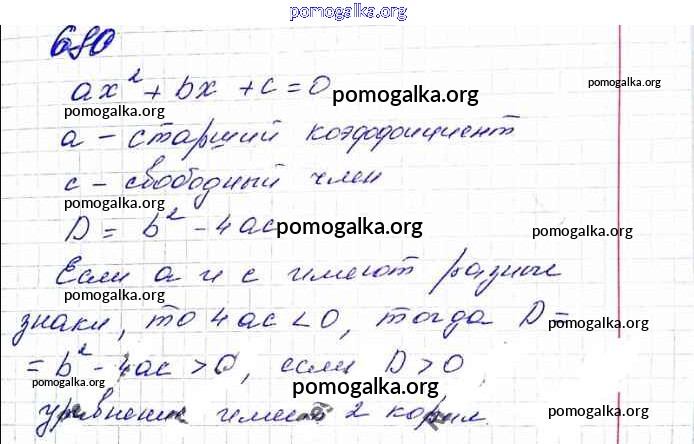 pomogalka.org
680
ax² + bx + c = 0 pomogalka.org pomogalka.org
a – старший коэффициент
pomogalka.org
c – свободный член
pomogalka.org
D = b² - 4ac pomogalka.org pomogalka.org
Если a и c имеют разные
pomogalka.org
знаки, то 4ac < 0, тогда D =
= b² - 4ac > 0, если D > 0,
pomogalka.org pomogalka.org
уравнение имеет 2 корня. pomogalka.org